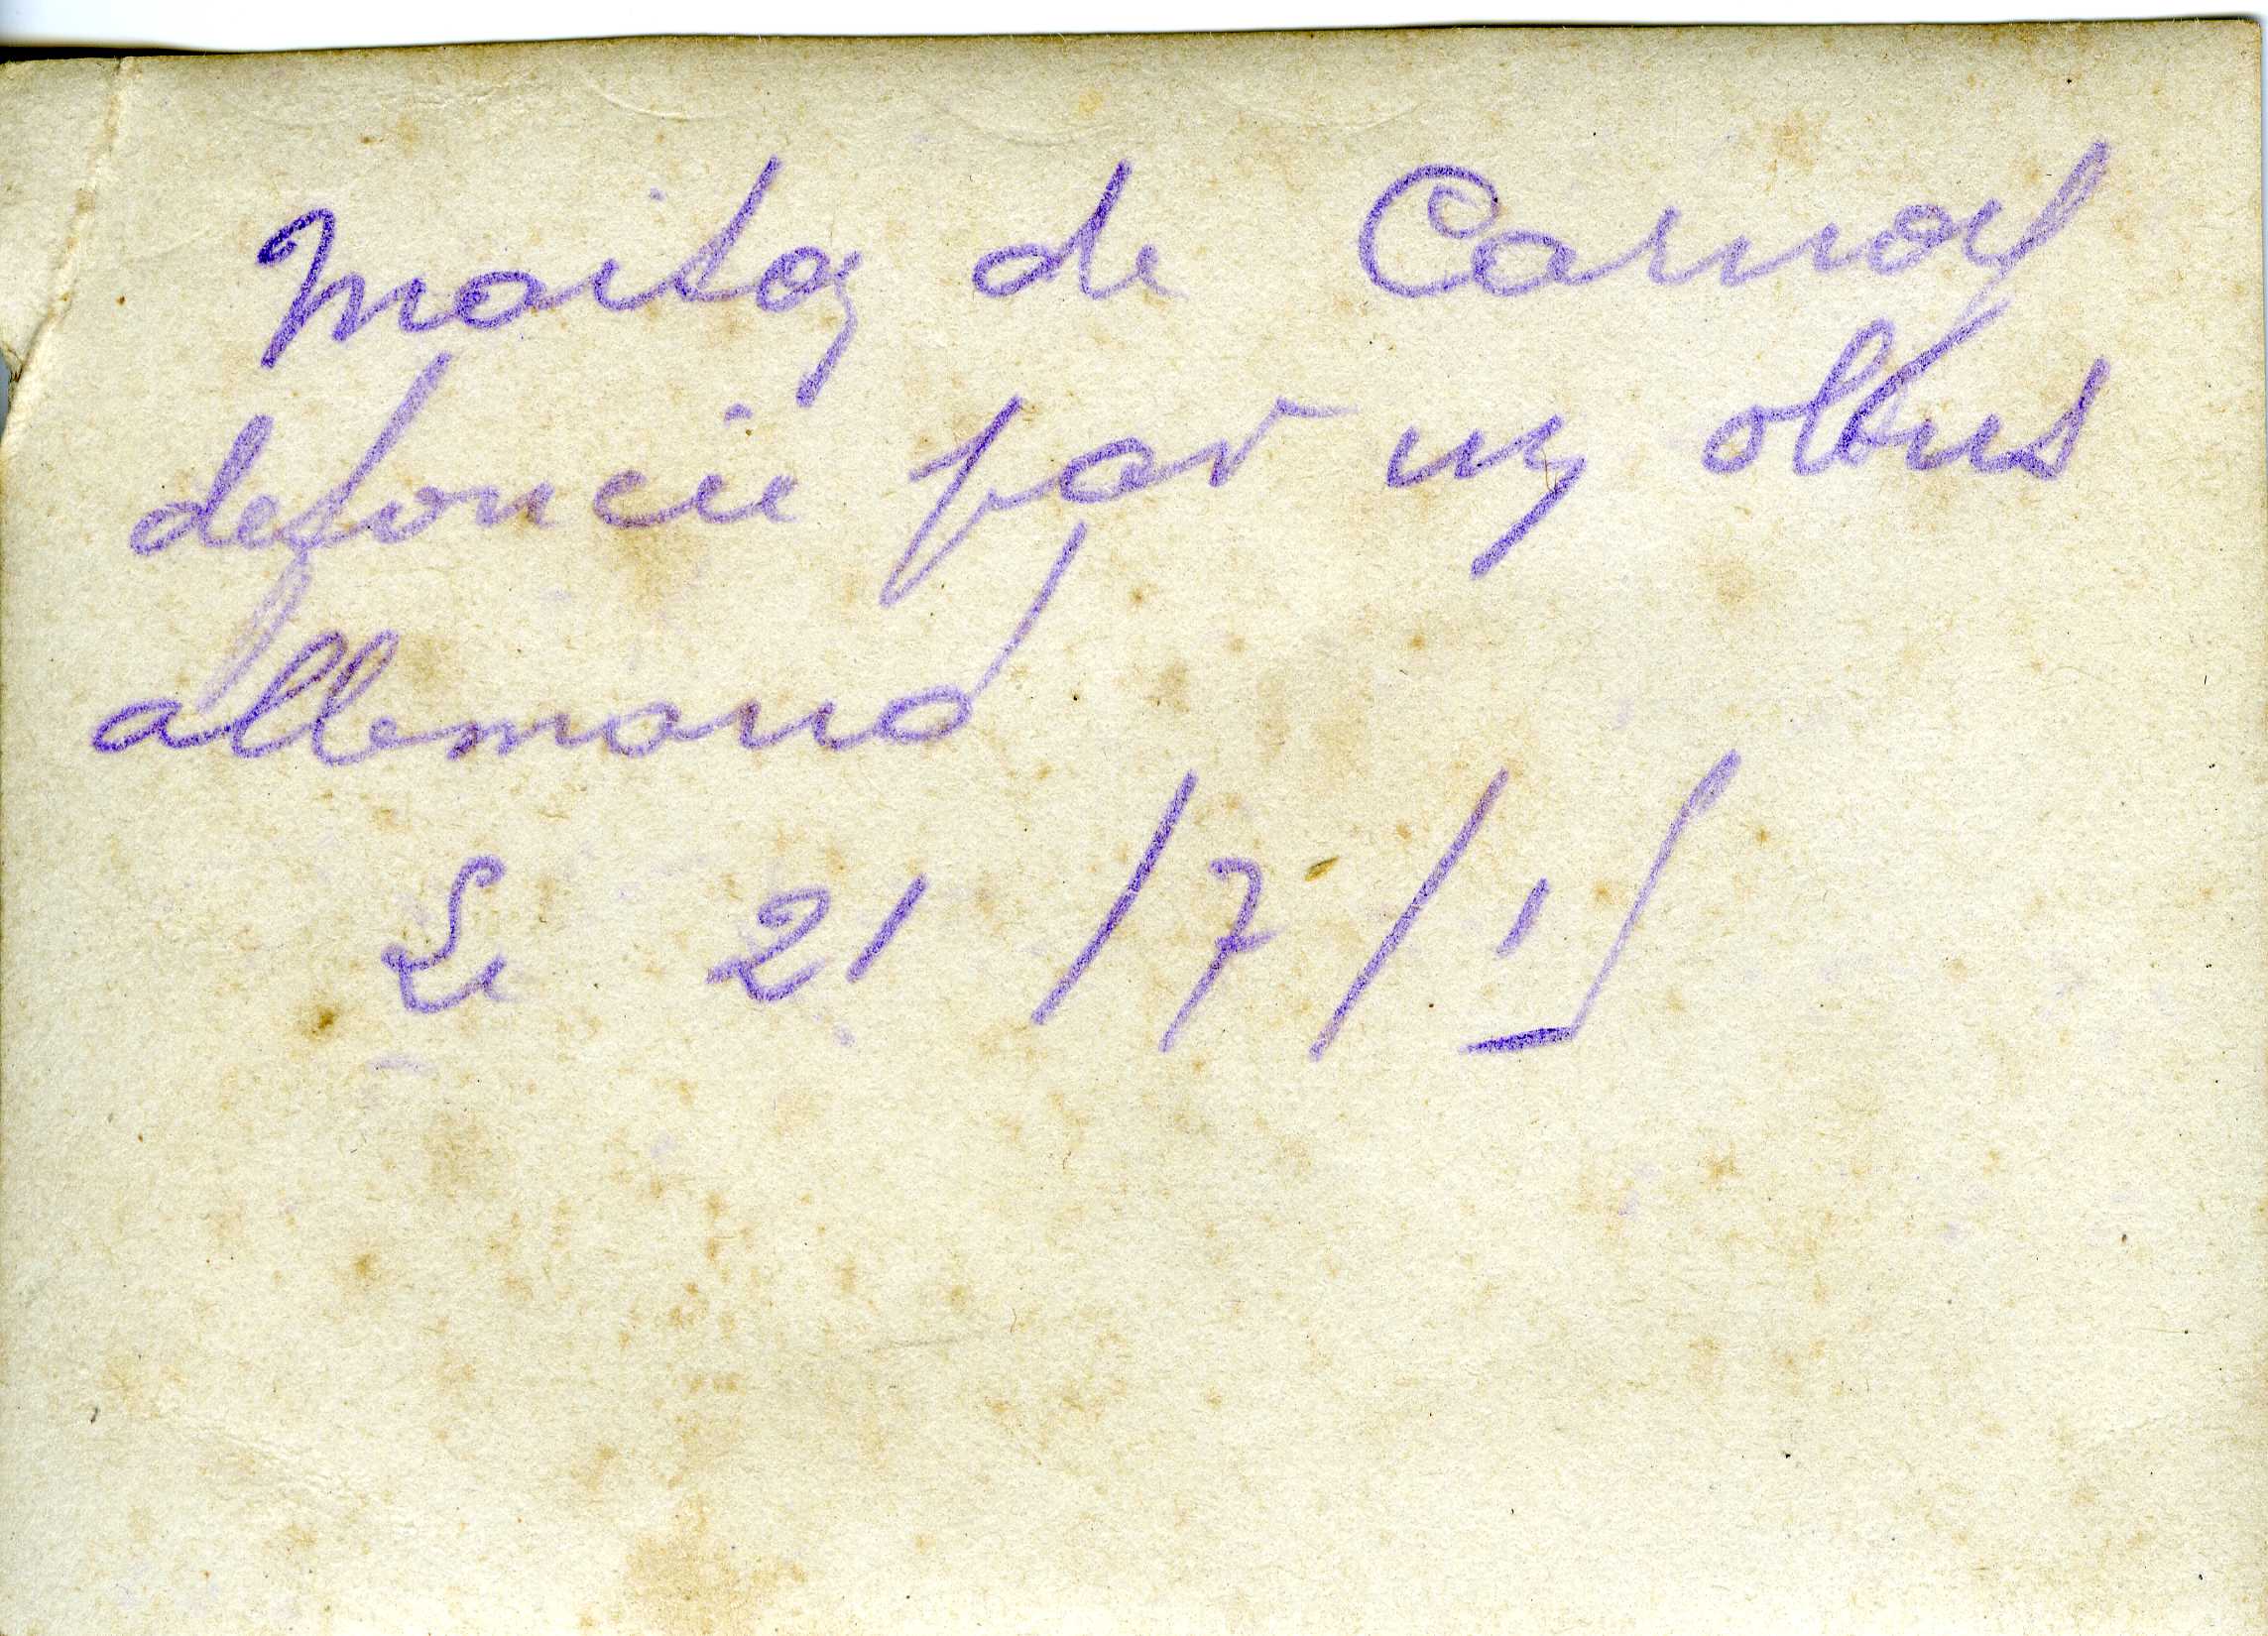 Maison de Carnoy
defoncée par un obus
allemand
Le 21/7/15